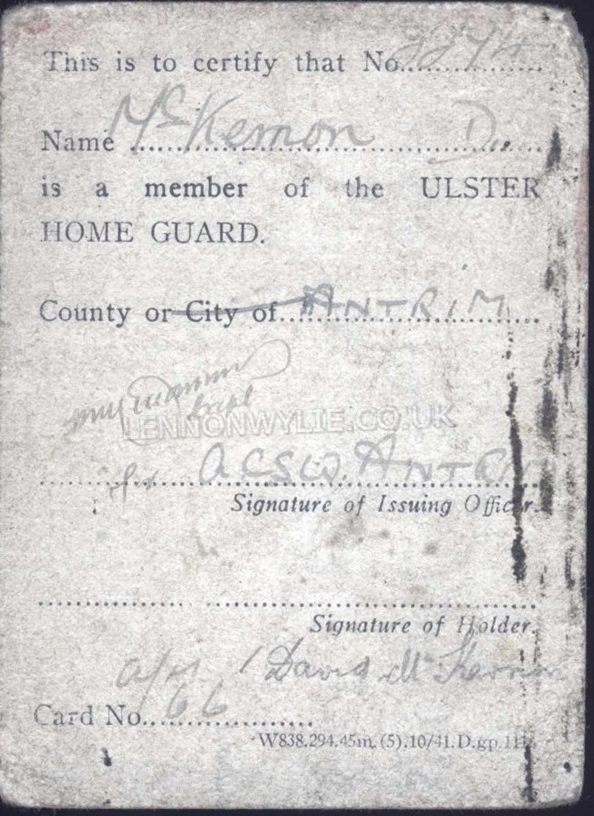 This is to certify that No.
Name McKernon D.
is a member of the ULSTER
HOME GUARD.
County or City of ANTRIM
LENNONWYLIE.CO.UK
ANTRIM
Signature of Issuing Officer.
Signature of Holder.
David McKernon
Card No. 66
W838.294.45m.(5).10/41.D.gp.